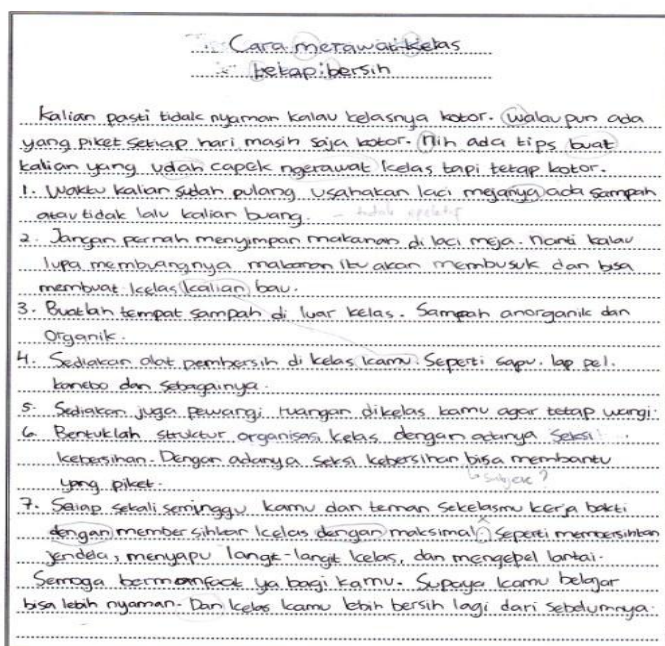 Cara merawat kelas
tetap bersih
Kalian pasti tidak nyaman kalau kelasnya kotor. walau pun ada
yang piket setiap hari masih saja kotor. Nih ada tips buat
kalian yang udah capek ngerawat kelas tapi tetap kotor.
1. Waktu kalian sudah pulang usahakan laci mejanya ada sampah
atau tidak lalu kalian buang. - tidak
2. Jangan pernah menyimpan makanan di laci meja. nanti kalau
lupa membuangnya makanan itu akan membusuk dan bisa
membuat kelas kalian bau.
3. Buatlah tempat sampah di luar kelas. Sampah anorganik dan
Organik.
4. Sediakan alat pembersih di kelas kamu. Seperti sapu. lap pel.
kanebo dan sebagainya.
5. Sediakan juga pewangi ruangan dikelas kamu agar tetap wangi.
6. Bentuklah struktur organisasi kelas dengan adanya seksi
kebersihan. Dengan adanya seksi kebersihan bisa membantu
yang piket. subjek?
7. Setiap sekali seminggu kamu dan teman sekelasmu kerja bakti
dengan member sihkan kelas dengan maksimal. Seperti membersihkan
jendela, menyapu langit-langit kelas, dan mengepel lantai.
Semoga bermanfaat ya bagi kamu. Supaya kamu belajar
bisa lebih nyaman. Dan kelas kamu lebih bersih lagi dari sebelumnya.